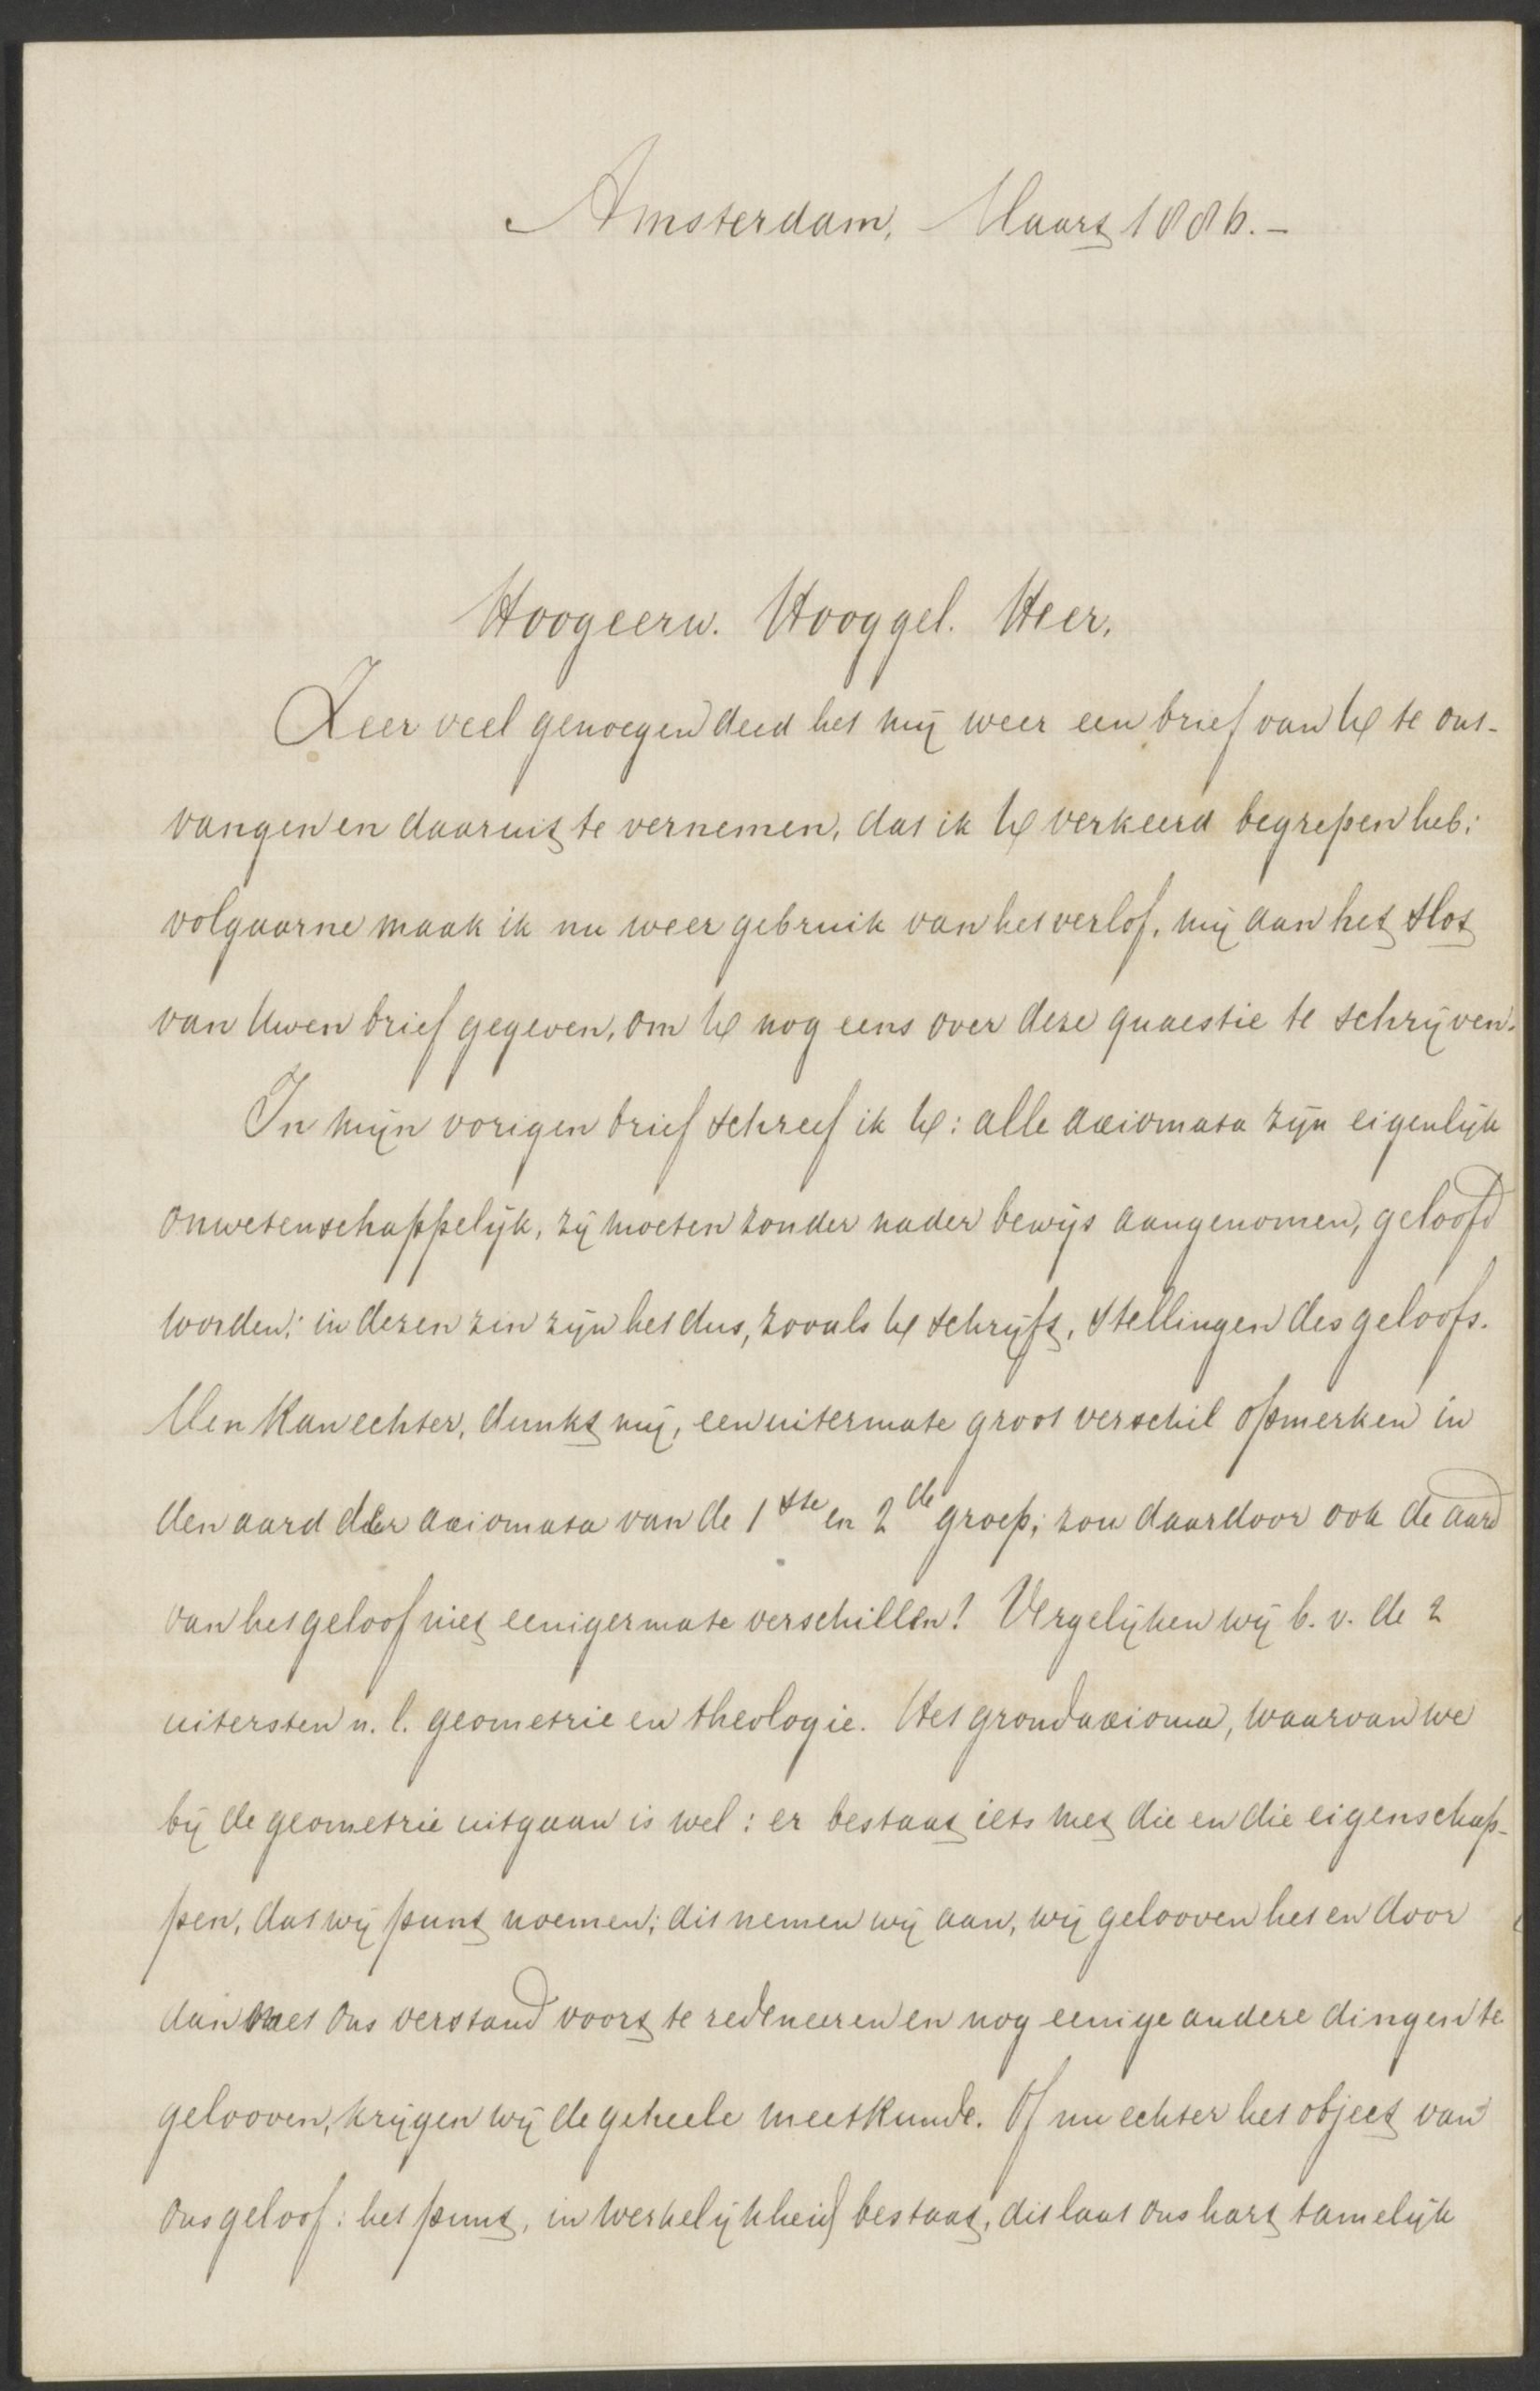 Amsterdam, Maart 1886.-
Hoogeerw. Hooggel. Heer,
Zeer veel genoegen deed het mij weer een brief van U te ont-
vangen en daaruit te vernemen, dat ik U verkeerd begrepen heb;
volgaarne maak ik nu weer gebruik van het verlof, mij aan het slot
van Uwen brief gegeven, om U nog eens over deze quaestie te schrijven.
In mijn vorigen brief schreef ik U: alle axiomata zijn eigenlijk
onwetenschappelijk, zij moeten zonder nader bewijs aangenomen, geloofd
worden; in dezen zin zijn het dus, zooals U schrijft, stellingen des geloofs.
Men kan echter, dunkt mij, een uitermate groot verschil opmerken in
den aard der axiomata van de 1ste en 2de groep; zou daardoor ook de aard
van het geloof niet eenigermate verschillen? Vergelijken wij b.v. de 2
uitersten n.l. geometrie en theologie. Het grondaxioma, waarvan we
bij de geometrie uitgaan is wel: er bestaat iets met die en die eigenschap-
pen, dat wij punt noemen; dit nemen wij aan, wij gelooven het en door
dan met ons verstand voort te redeneeren en nog eenige andere dingen te
gelooven, krijgen wij de geheele meetkunde. Of nu echter het object van
ons geloof: het punt, in werkelijkheid bestaat, dit laat ons hart tamelijk